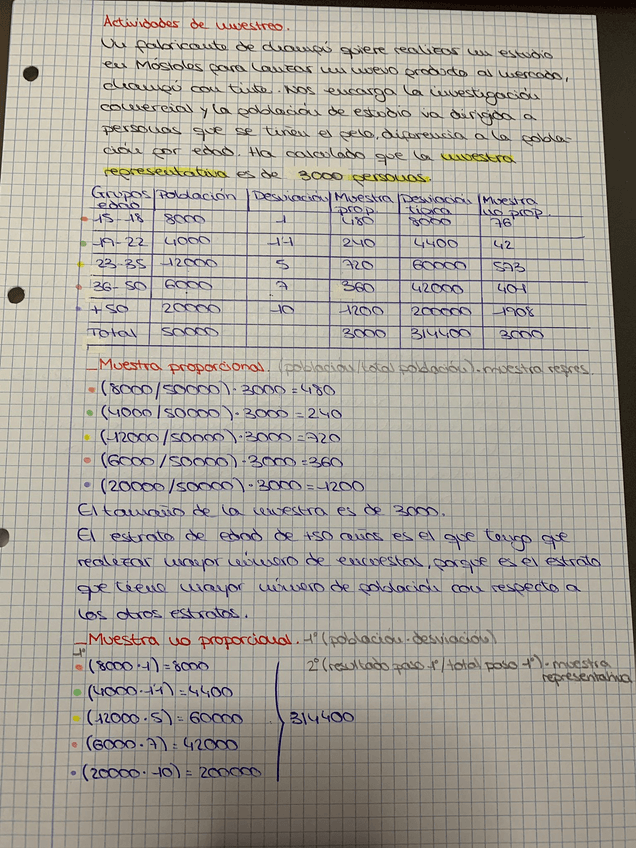 Actividades de muestreo.
Un fabricante de champú quiere realizar un estudio
en Móstoles para lanzar un nuevo producto al mercado,
champú con tinte. Nos encarga la investigación
comercial y la población de estudio va dirigida a
personas que se tiñen el pelo, diferencia a la pobla-
ción por edad. Ha calculado que la muestra
representativa es de 3000 personas.
Grupos edad | Población | Desviación | Muestra prop. | Desviación típica | Muestra no prop.
15-18 | 8000 | 1 | 480 | 8000 | 76
19-22 | 4000 | 1'1 | 240 | 4400 | 42
23-35 | 12000 | 5 | 720 | 60000 | 573
36-50 | 6000 | 7 | 360 | 42000 | 401
+50 | 20000 | 10 | 1200 | 200000 | 1908
Total | 50000 | 3000 | 314400 | 3000
_Muestra proporcional. (población/total población)·muestra repres.
(8000/50000)·3000=480
(4000/50000)·3000=240
(12000/50000)·3000=720
(6000/50000)·3000=360
(20000/50000)·3000=1200
El tamaño de la muestra es de 3000.
El estrato de edad de +50 años es el que tengo que
realizar mayor número de encuestas, porque es el estrato
que tiene mayor número de población con respecto a
los otros estratos.
_Muestra no proporcional. 1º (población·desviación)
2º (resultado paso 1º/total paso 1º)·muestra
representativa
1º
(8000·1)=8000
(4000·1'1)=4400
(12000·5)=60000
314400
(6000·7)=42000
(20000·10)=200000